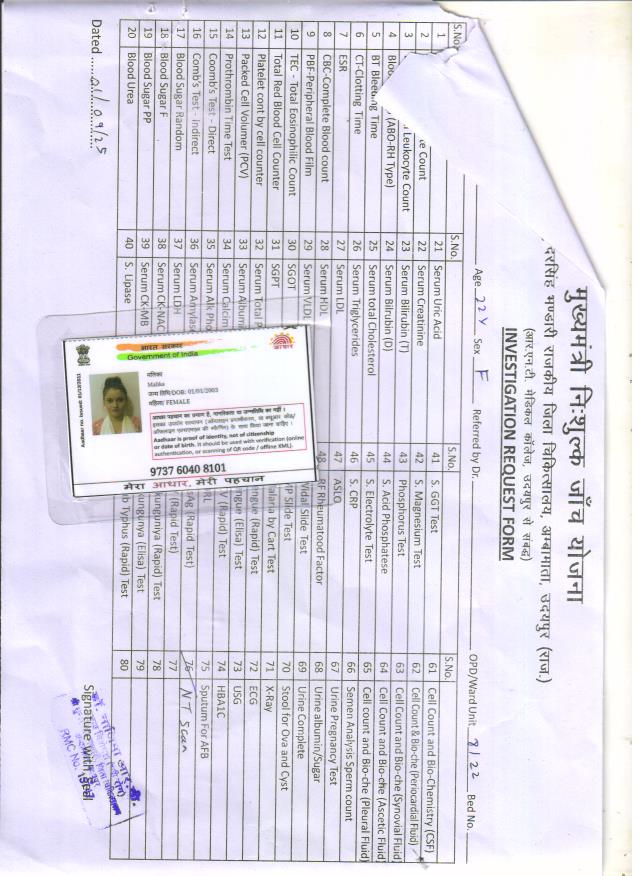 मुख्यमंत्री निःशुल्क जाँच योजना
दरसिंह भण्डारी राजकीय जिला चिकित्सालय, अम्बामाता, उदयपुर (राज.)
(आर.एन.टी. मेडिकल कॉलेज, उदयपुर से सबद्ध)
INVESTIGATION REQUEST FORM
Age 22 Y Sex F Referred by Dr. OPD/Ward Unit 8/22 Bed No.
S.No. S.No. S.No. S.No.
1 21 Serum Uric Acid 41 S. GGT Test 61 Cell Count and Bio-Chemistry (CSF)
2 te Count 22 Serum Creatinine 42 S. Magnesium Test 62 Cell Count & Bio-che (Periocardial Fluid)
3 Leukocyte Count 23 Serum Bilirubin (T) 43 Phosphorus Test 63 Cell Count and Bio-che (Synovial Fluid
4 Bloo (ABO-RH Type) 24 Serum Bilrubin (D) 44 S. Acid Phosphatese 64 Cell count and Bio-che (Ascetic Fluid)
5 BT Bleeding Time 25 Serum total Cholesterol 45 S. Electrolyte Test 65 Cell count and Bio-che (Pleural Fluid)
6 CT-Clotting Time 26 Serum Triglycerides 46 S. CRP 66 Semen Analysis Sperm count
7 ESR 27 Serum LDL 47 ASLO 67 Urine Pregnancy Test
8 CBC-Complete Blood count 28 Serum HDL 48 RF Rheumatood Factor 68 Urine albumin/Sugar
9 PBF-Peripheral Blood Film 29 Serum VLDL Vidal Slide Test 69 Urine Complete
10 TEC - Total Eosinophilic Count 30 SGOT MP Slide Test 70 Stool for Ova and Cyst
11 Total Red Blood Cell Counter 31 SGPT alaria by Cart Test 71 X-Ray
12 Platelet cont by cell counter 32 Serum Total P engue (Rapid) Test 72 ECG
13 Packed Cell Volumer (PCV) 33 Serum Albumi ngue (Elisa) Test 73 USG
14 Prothrombin Time Test 34 Serum Calcim V (Rapid) Test 74 HBA1C
15 Coomb's Test - Direct 35 Serum Alk Pho RL 75 Sputum For AFB
16 Comb's Test - Indirect 36 Serum Amylas Ag (Rapid) Test 76 NT Scan
17 Blood Sugar Random 37 Serum LDH (Rapid) Test 77
18 Blood Sugar F 38 Serum CK-NAC kunguniya (Rapid) Test 78
19 Blood Sugar PP 39 Serum CK-MB kungunya (Elisa) Test 79
20 Blood Urea 40 S. Lipase b Typhus (Rapid) Test 80
Dated 01/09/25
Signature with Seal
RMC No.
भारत सरकार
Government of India
आधार
मलिका
Malika
जन्म तिथि/DOB: 01/01/2003
महिला/ FEMALE
आधार पहचान का प्रमाण है, नागरिकता या जन्मतिथि का नहीं।
Aadhaar is proof of identity, not of citizenship
or date of birth. It should be used with verification (online
authentication, or scanning of QR code / offline XML).
9737 6040 8101
मेरा आधार, मेरी पहचान